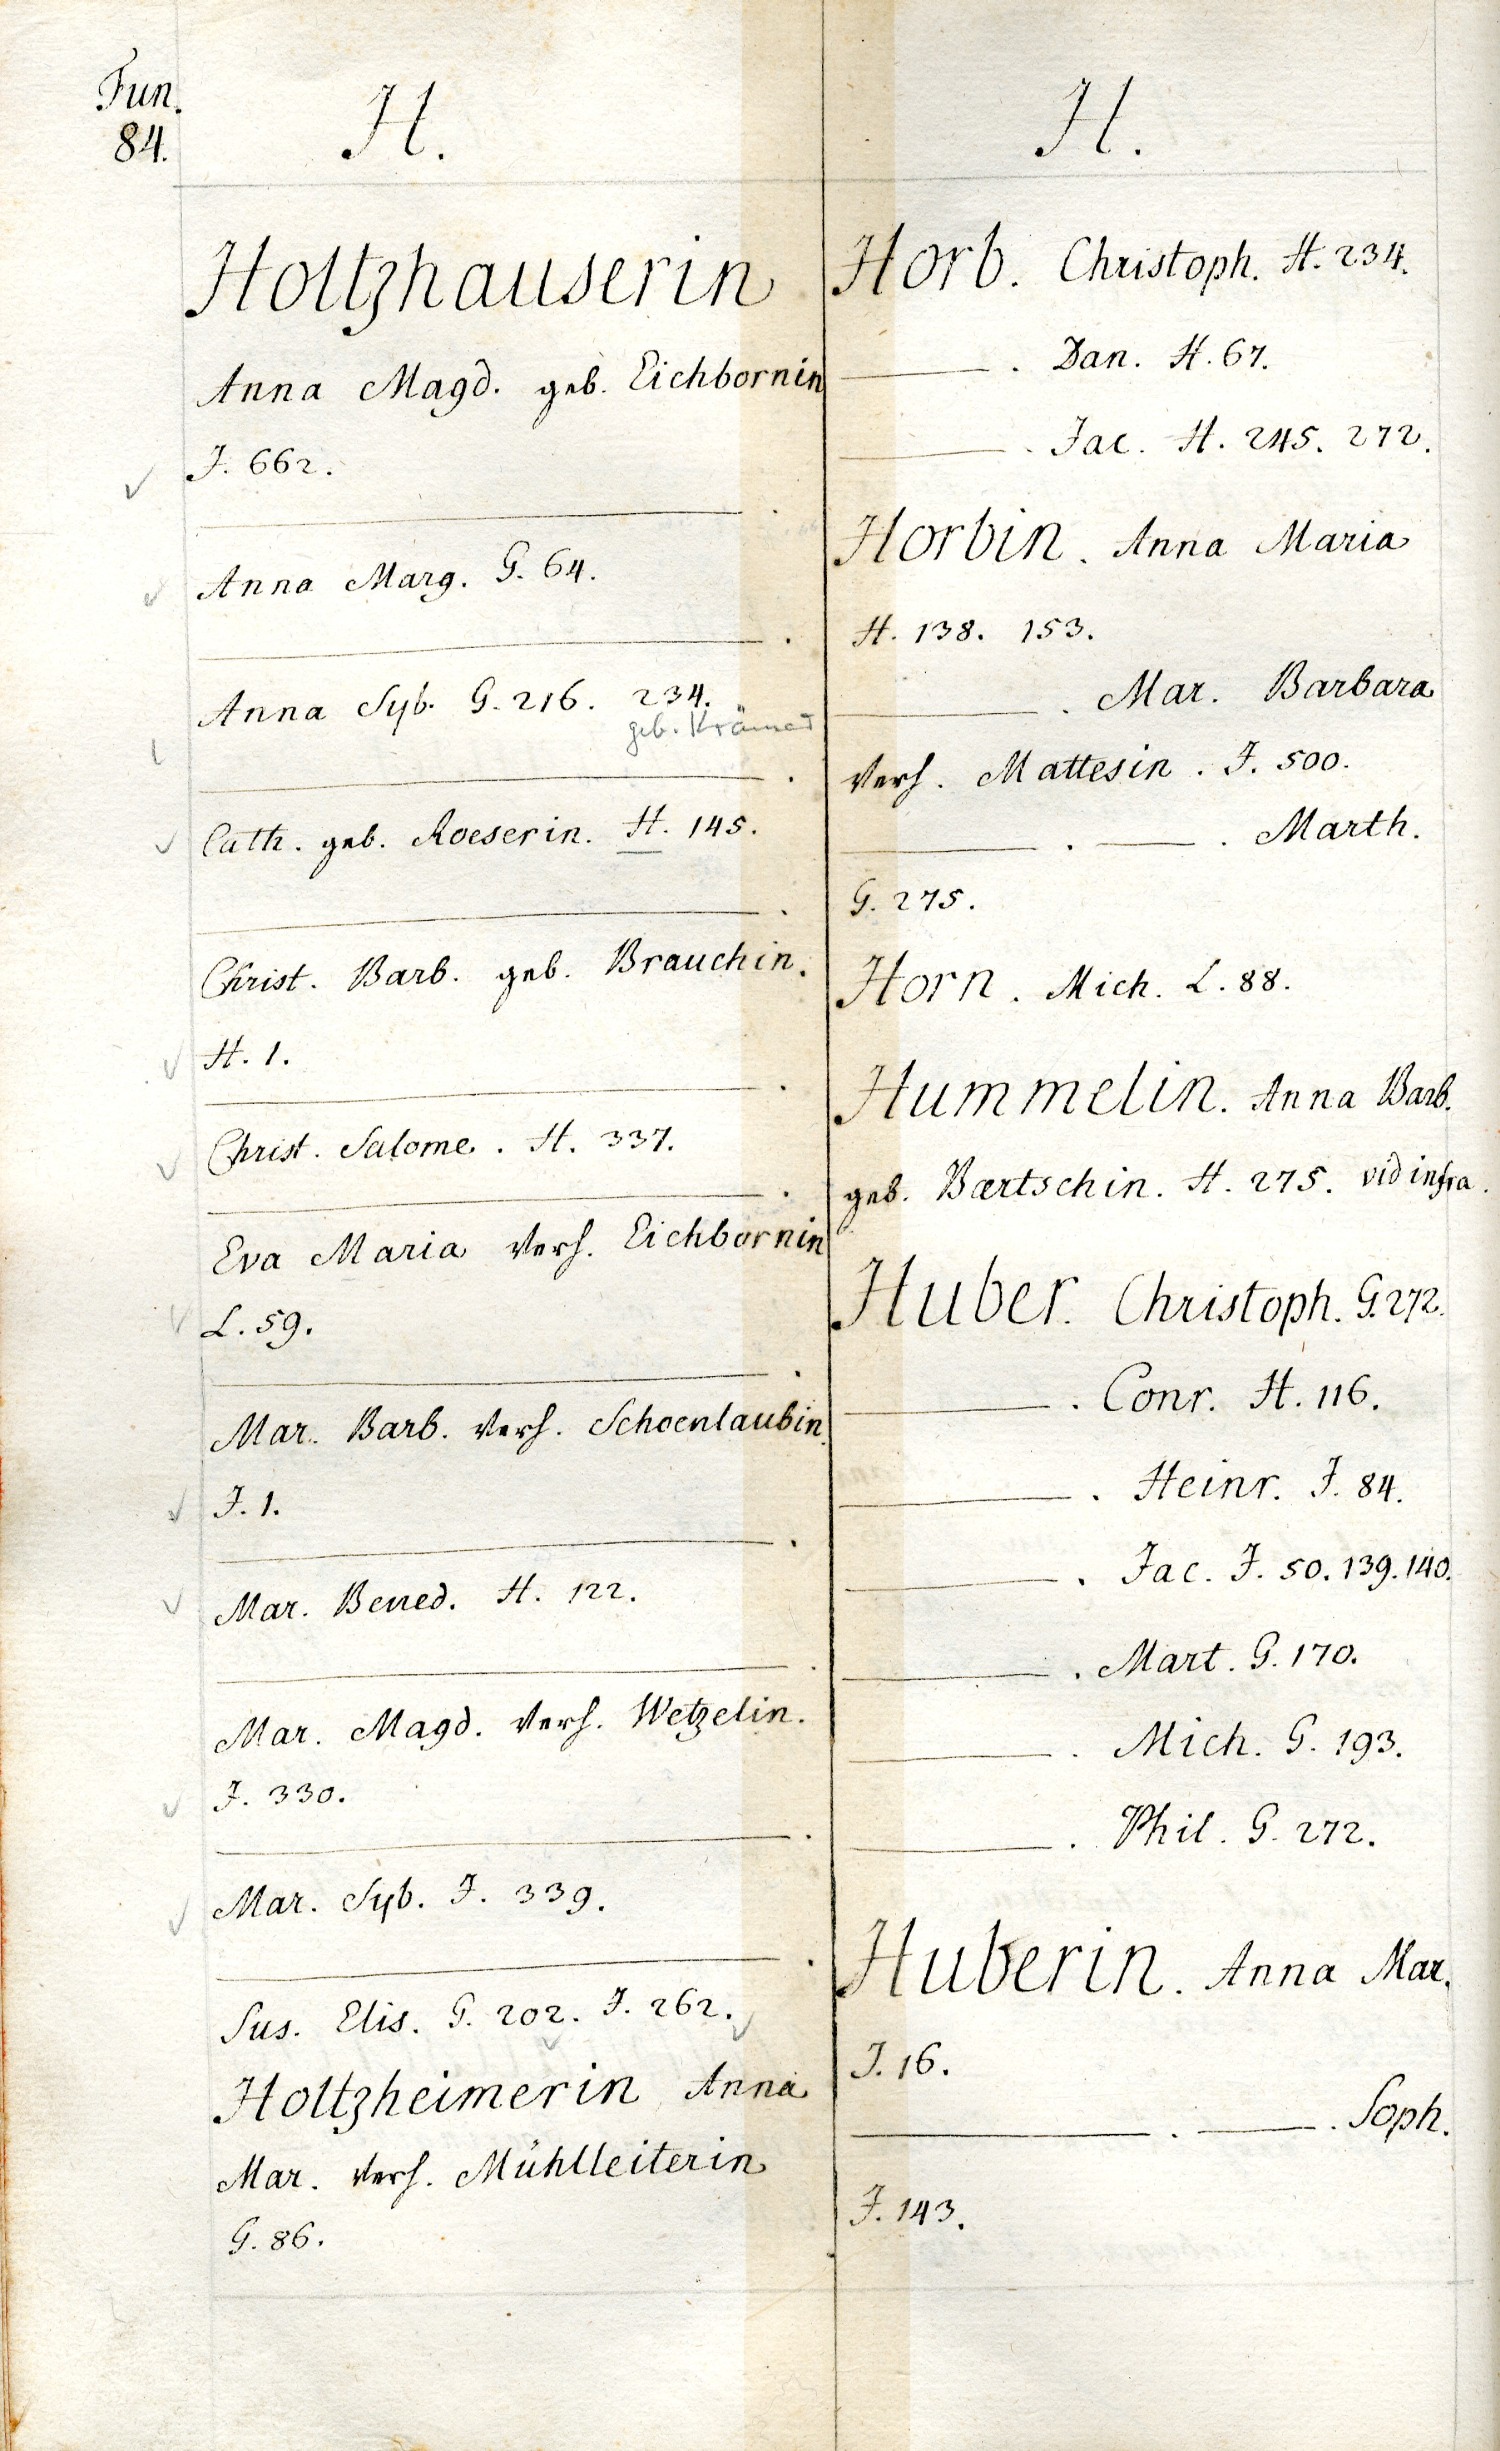 Fun.
84.
H.
Holtzhauserin
Anna Magd. geb. Eichbornin
J. 662.
Anna Marg. G. 64.
Anna Syb. G. 216. 234.
geb. Krämer
Cath. geb. Roeserin. H. 145.
Christ. Barb. geb. Brauchin.
H. 1.
Christ. Salome. H. 337.
Eva Maria Verh. Eichbornin
L. 59.
Mar. Barb. Verh. Schoenlaubin.
J. 1.
Mar. Bened. H. 122.
Mar. Magd. Verh. Wetzelin.
J. 330.
Mar. Syb. J. 339.
Sus. Elis. G. 202. J. 262.
Holtzheimerin Anna
Mar. Verh. Mühlleiterin
G. 86.
H.
Horb. Christoph. H. 234.
——. Dan. H. 67.
——. Jac. H. 245. 272.
Horbin. Anna Maria
H. 138. 153.
——. Mar. Barbara
Verh. Mattesin. J. 500.
——. ——. Marth.
G. 275.
Horn. Mich. L. 88.
Hummelin. Anna Barb.
geb. Bærtschin. H. 275. vid infra.
Huber. Christoph. G. 272.
——. Conr. H. 116.
——. Heinr. J. 84.
——. Jac. J. 50. 139. 140.
——. Mart. G. 170.
——. Mich. G. 193.
——. Phil. G. 272.
Huberin. Anna Mar.
J. 16.
——. ——. Soph.
J. 143.